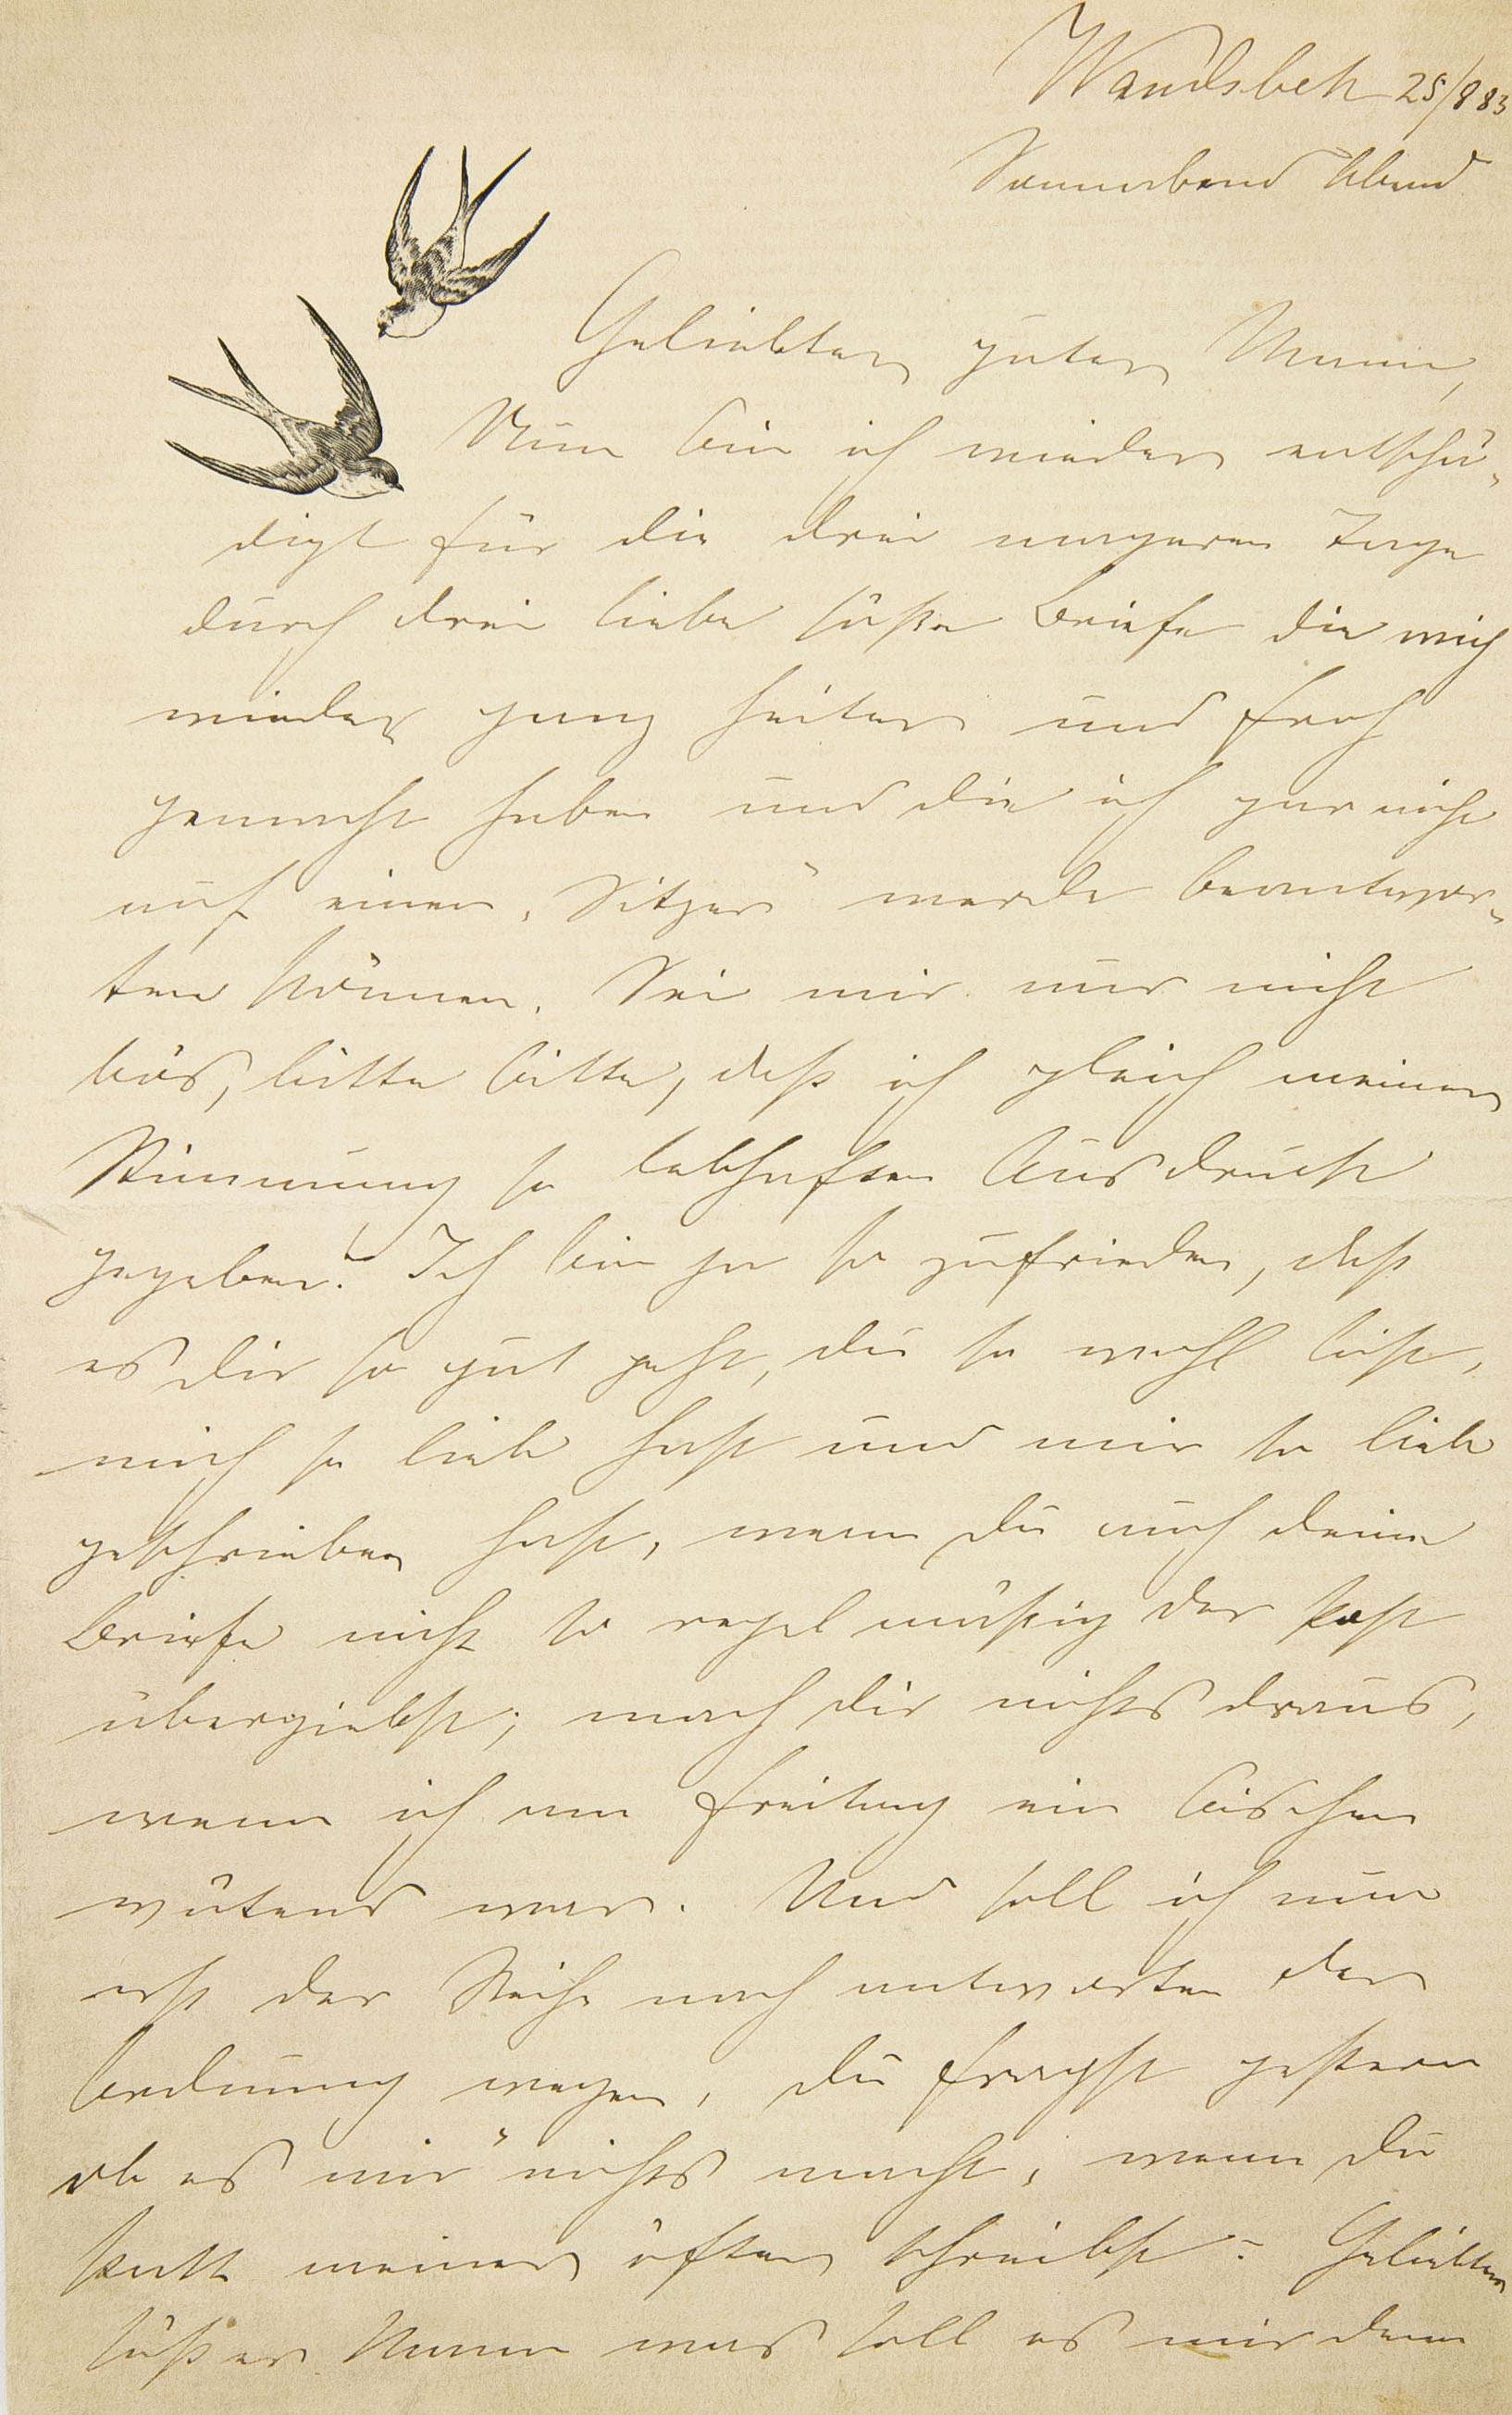 Wandsbek 25/8 83
Sonnabend Abend
Geliebter guter Mann,
Nun bin ich wieder entschä-
digt für die drei mageren Tage
durch drei liebe süße Briefe die mich
wieder ganz heiter und froh
gemacht haben und die ich gar nicht
auf einen „Sitzer" werde beantwor-
ten können. Sei mir nur nicht
bös, bitte bitte, daß ich gleich meiner
Stimmung so lebhaften Ausdruck
gegeben! Ich bin ja so zufrieden, daß
es dir so gut geht, du so wohl bist,
mich so lieb hast und mir so lieb
geschrieben hast, wenn du auch deine
Briefe nicht so regelmäßig der Post
übergiebst; mach dir nichts draus,
wenn ich am Freitag ein bischen
wütend war. Und soll ich nun
erst der Reihe nach antworten der
Ordnung wegen, du fragst gestern
ob es mir nichts macht, wenn du
statt meiner öfter schreibst? Geliebter
süßer Mann was soll es mir denn